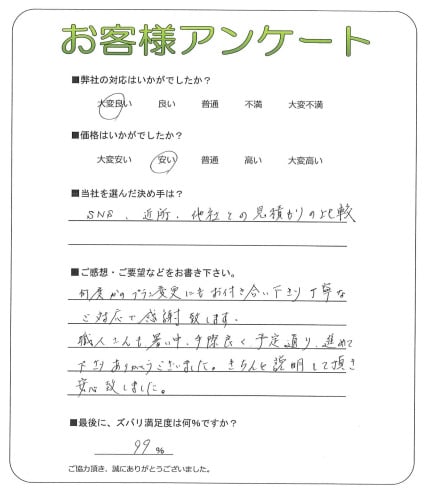 お客様アンケート
■弊社の対応はいかがでしたか？
大変良い 良い 普通 不満 大変不満
■価格はいかがでしたか？
大変安い 安い 普通 高い 大変高い
■当社を選んだ決め手は？
SNS、近所、他社との見積かりの比較
■ご感想・ご要望などをお書き下さい。
何度かのプラン変更にもお付き合い下さり丁寧な
ご対応で感謝致します。
職人さんも暑い中、手際良く予定通り、進めて
下さりありがとうございました。きちんと説明して頂き
安心致しました。
■最後に、ズバリ満足度は何%ですか？
99 %
ご協力頂き、誠にありがとうございました。